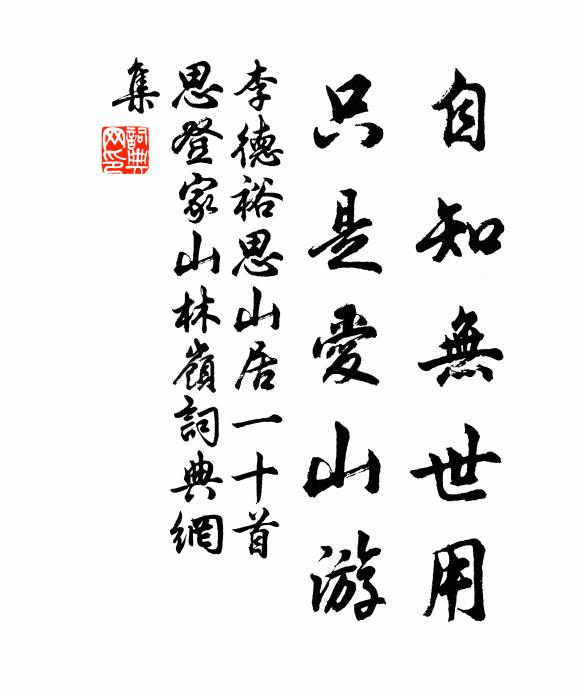 自知無世用
只是愛山游
李德裕思山居一十首
思登家山林嶺詞典網
集
詞典網印